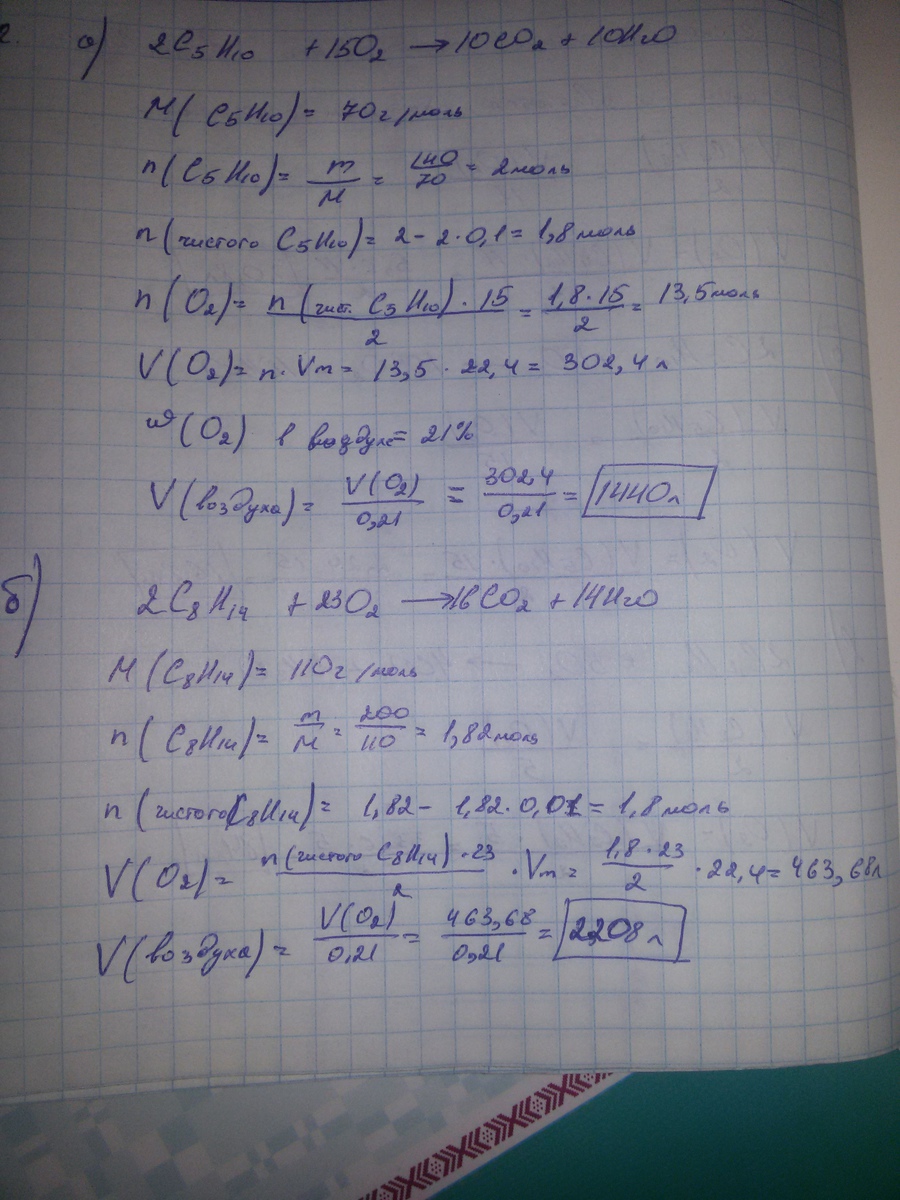 2.
а) 2C₅H₁₀ + 15O₂ → 10CO₂ + 10H₂O
M(C₅H₁₀) = 70г/моль
n(C₅H₁₀) = m/M = 140/70 = 2моль
n(чистого C₅H₁₀) = 2 - 2·0,1 = 1,8моль
n(O₂) = n(чист. C₅H₁₀)·15/2 = 1,8·15/2 = 13,5моль
V(O₂) = n·Vm = 13,5·22,4 = 302,4л
ω(O₂) в воздухе = 21%
V(воздуха) = V(O₂)/0,21 = 302,4/0,21 = 1440л
б) 2C₈H₁₄ + 23O₂ → 16CO₂ + 14H₂O
M(C₈H₁₄) = 110г/моль
n(C₈H₁₄) = m/M = 200/110 = 1,82моль
n(чистого C₈H₁₄) = 1,82 - 1,82·0,01 = 1,8моль
V(O₂) = n(чистого C₈H₁₄)·23/2 ·Vm = 1,8·23/2 ·22,4 = 463,68л
V(воздуха) = V(O₂)/0,21 = 463,68/0,21 = 2208л